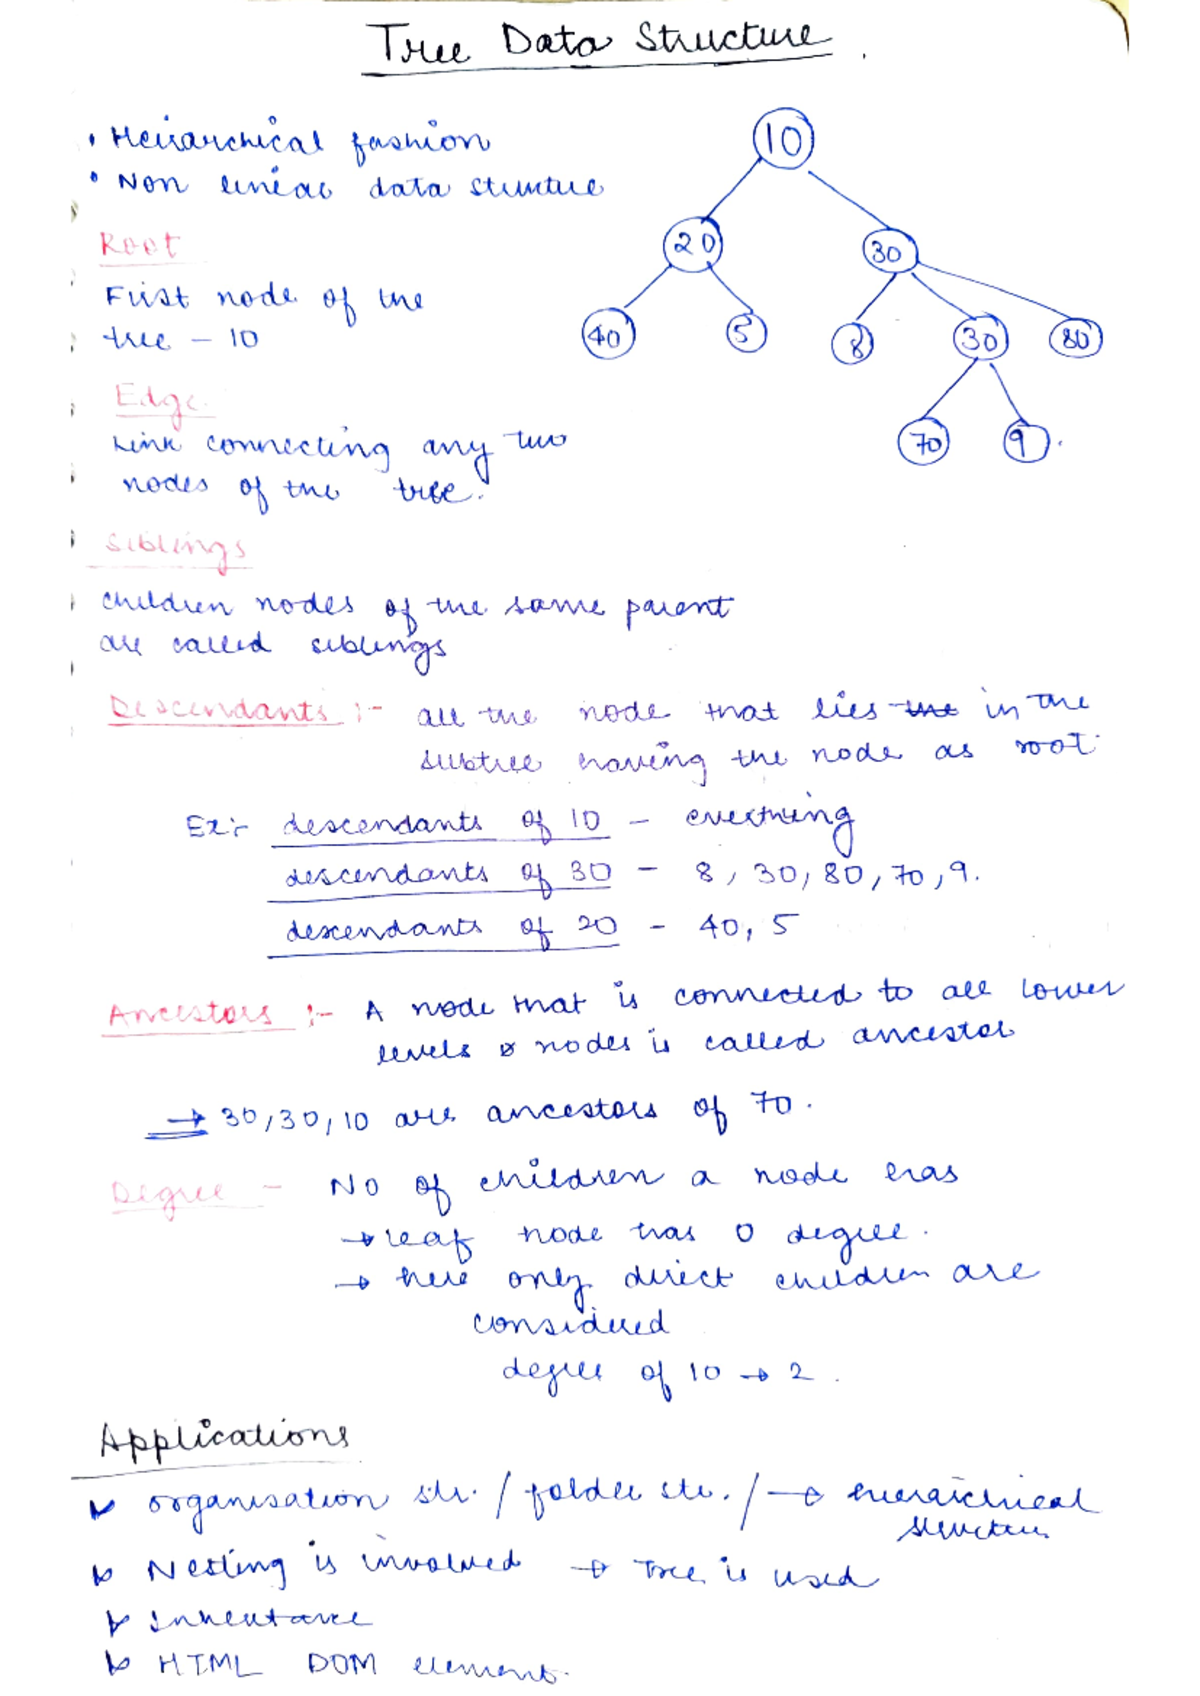 Tree Data Structure
• Heirarchical fashion
• Non linear data structure
Root
First node of the
tree – 10
Edge
Link connecting any two
nodes of the tree.
Siblings
children nodes of the same parent
are called siblings
10
20
30
40
5
8
30
80
70
9
Descendants :- all the node that lies the in the
subtree having the node as root.
Ex:- descendants of 10 – everthing
descendants of 30 – 8, 30, 80, 70, 9.
descendants of 20 – 40, 5
Ancestors :- A node that is connected to all lower
levels nodes is called ancestor
→ 30, 30, 10 are ancestors of 70.
Degree – No of children a node has
→ leaf node has 0 degree.
→ here only direct children are
considered
degree of 10 → 2.
Applications
organisation str. / folder str. / → hierarchical
structure
Nesting is involved → Tree is used
Inheritance
HTML DOM element.